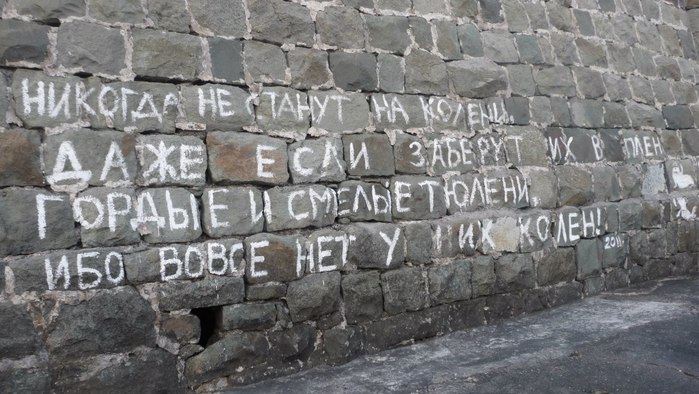 НИКОГДА НЕ СТАНУТ НА КОЛЕНИ,
ДАЖЕ ЕСЛИ ЗАБЕРУТ ИХ В ПЛЕН
ГОРДЫЕ И СМЕЛЫЕ ТЮЛЕНИ,
ИБО ВОВСЕ НЕТ У НИХ КОЛЕН!